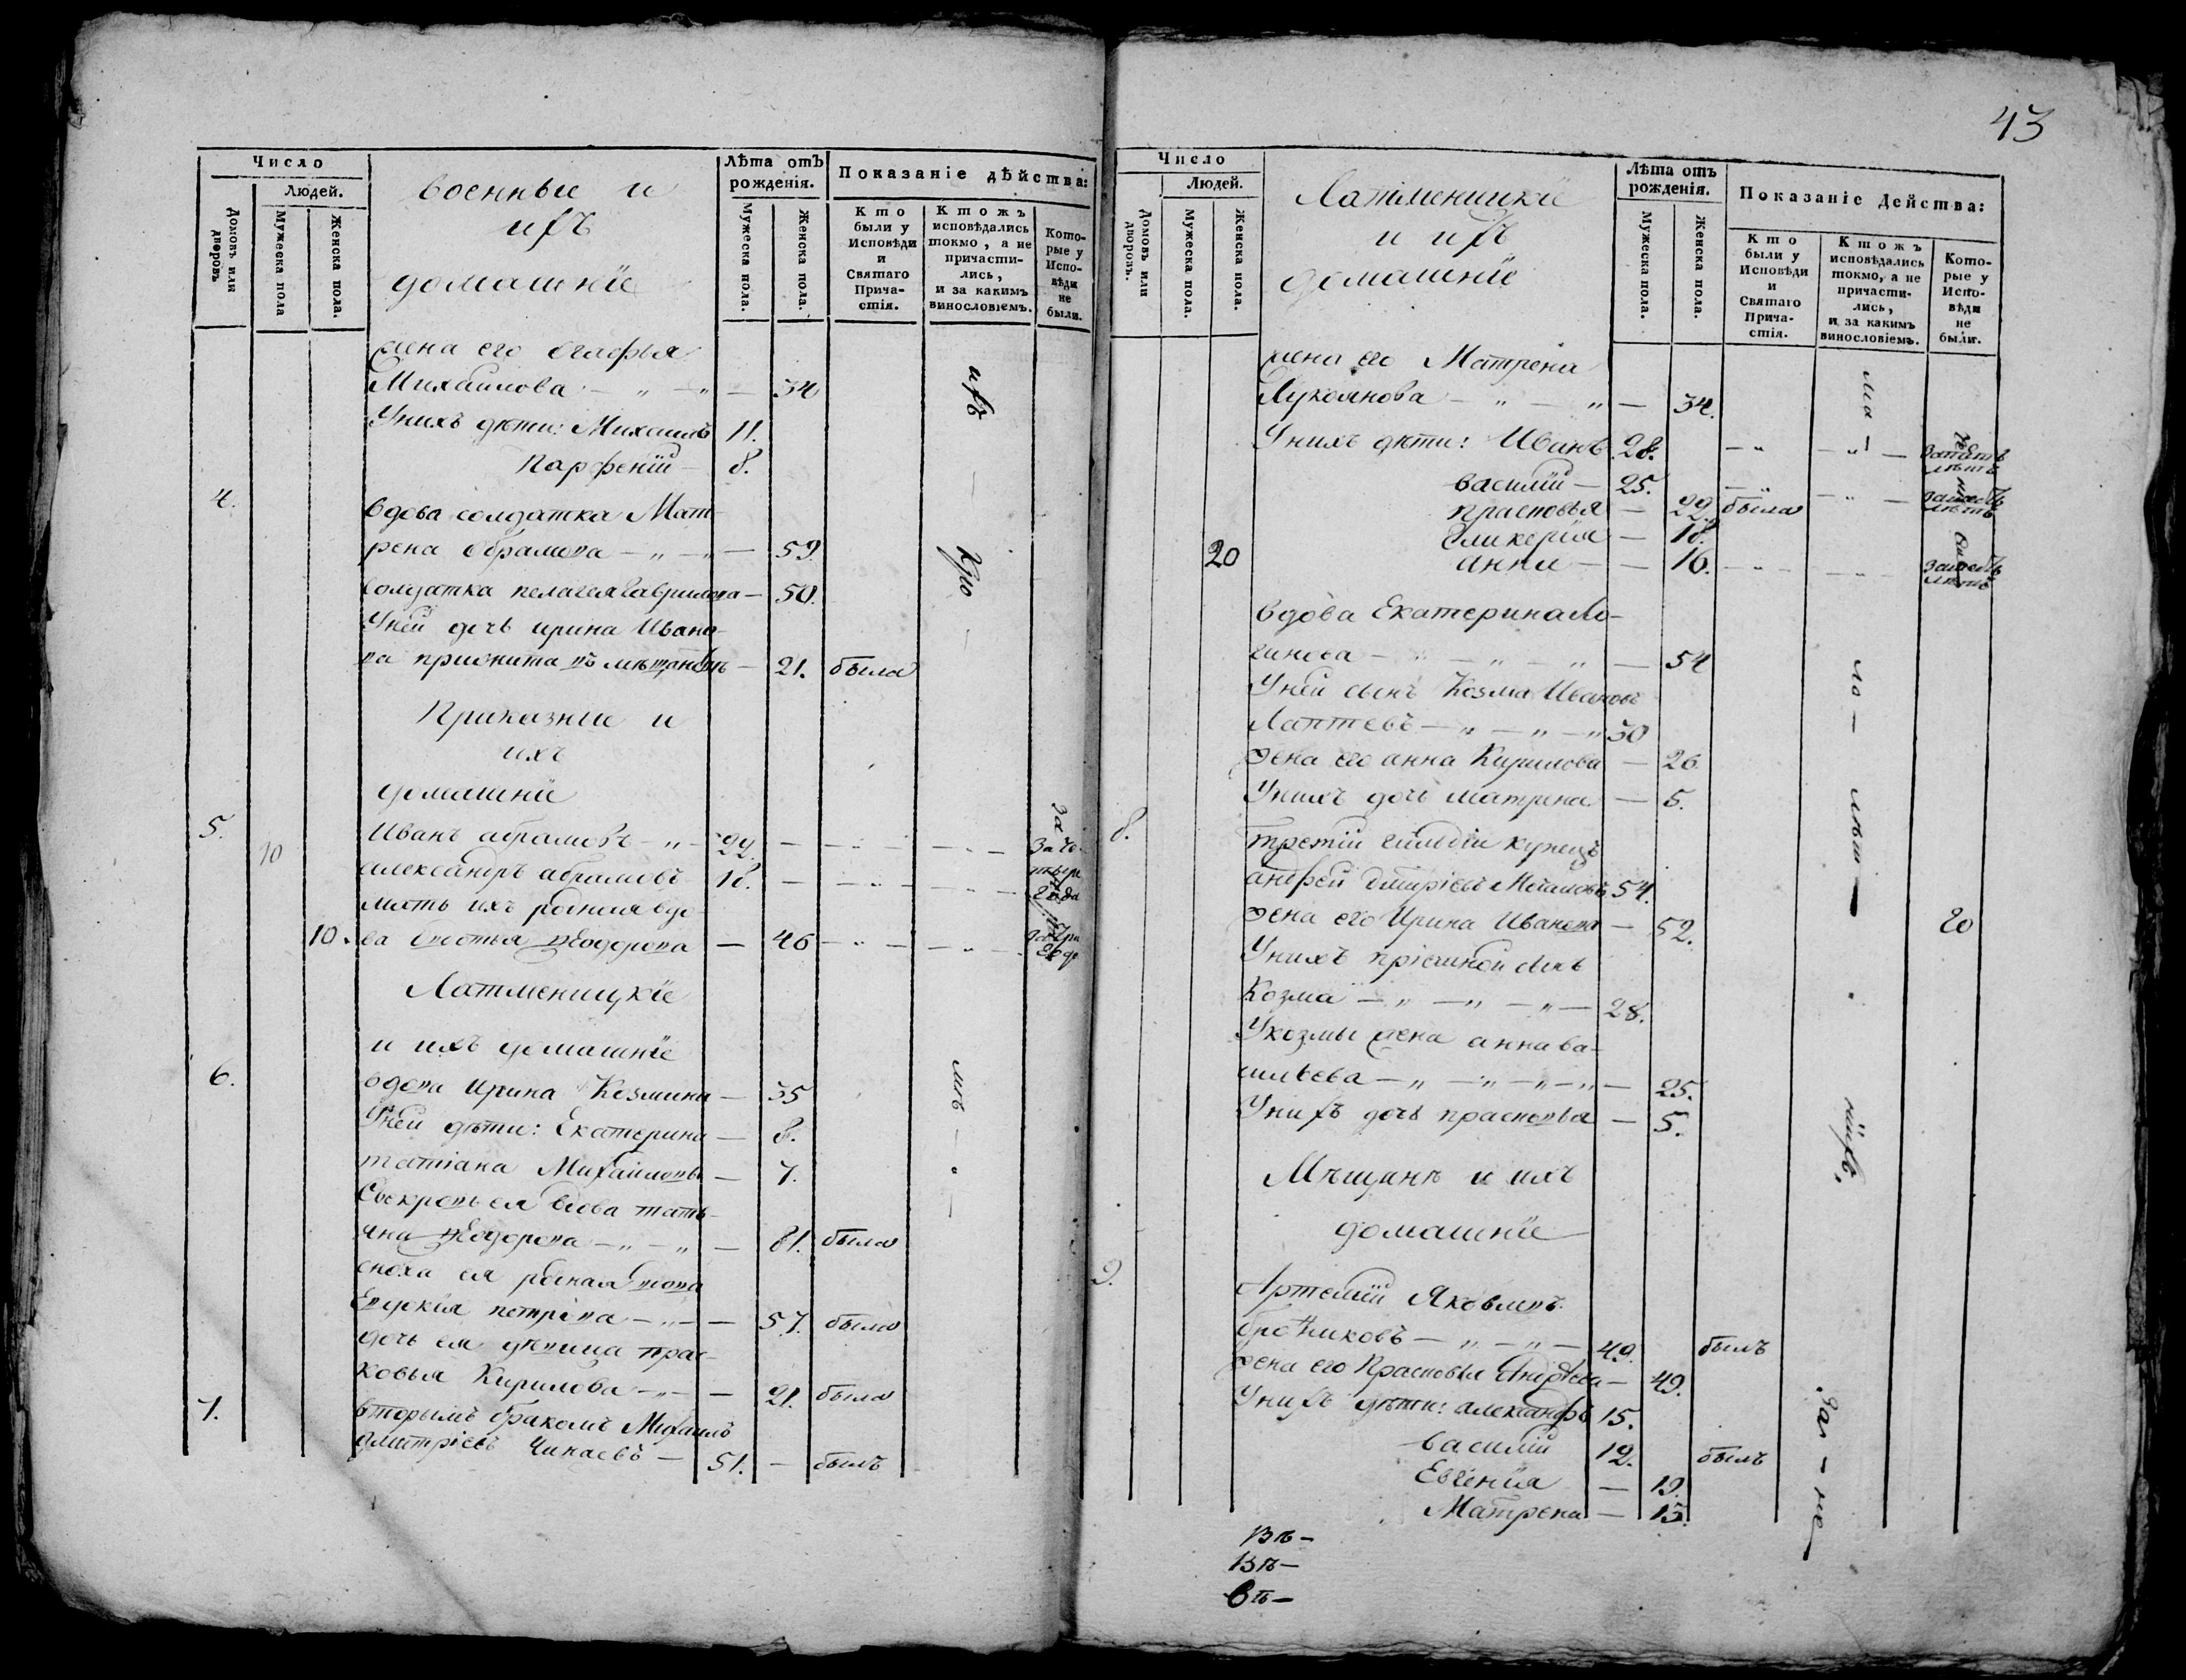 Число
Людей.
Домовъ или дворовъ
Мужеска пола
Женска пола.
военные и
ихъ
домашніе
Лѣта отъ рожденія.
Мужеска пола.
Женска пола.
Показаніе дѣйства:
Кто были у Исповѣди и Святаго Причастія.
Ктожъ исповѣдались токмо, а не причастились, и за какимъ винословіемъ.
Которые у Исповѣди не были.
жена его Агафья
Михаилова — „ — „ — 34
Унихъ дѣти: Михаилъ 11.
Парфеній — 8.
4. вдова солдатка Мат-
рена Абрамова — „ — „ — 59.
солдатка пелагея Гаврилова — 50.
Уней дочь ирина Ивано-
ва — 21. была
Приказные и
ихъ
домашніе
5. 10 Иванъ абрамовъ — „ — 22. — — „ — — „ —
александръ абрамовъ 18. — — „ — — „ —
мать ихъ родная вдо-
10. ва Ѳеодорова — 46 — „ — — „ —
Латменицкіе
и ихъ домашніе
6. вдова Ирина Козмина — 35
Уней дѣти: Екатерина — 8.
татіана Михаиловы — 7.
Свекровь ея вдова тать-
яна Ѳеодорова — „ — „ — 81. была
сноха ея родная вдова
Евдокія петрова — „ — 57. была
дочь ея дѣвица прас-
ковья Кирилова — „ — 21. была
7. вторымъ бракомъ Михаилъ
дмитріевъ Чинаевъ — 51. — былъ
43
Число
Людей.
Домовъ или дворовъ.
Мужеска пола.
Женска пола.
Латменицкіе
и ихъ
домашніе
Лѣта отъ рожденія.
Мужеска пола.
Женска пола.
Показаніе Действа:
Кто были у Исповѣди и Святаго Причастія.
Ктожъ исповѣдались токмо, а не причастились, и за какимъ винословіемъ.
Которые у Исповѣди не были.
жена его Матрена
Лукоянова — „ — „ — 34.
Унихъ дѣти: Иванъ 28. — „ — „ —
василій — 25. — „ — „ —
прасковья — 22. была
гликерія — 18.
20 анна — — 16. — „ — „ —
вдова Екатерина Ло-
гинова — „ — „ — „ — 54
Уней сынъ Козма Ивановъ
Лаптевъ — „ — „ — „ 30
жена его анна Кирилова — 26
Унихъ дочь матрена — 5.
8. третіи гильдіи купецъ
андрей Дмитріевъ 54.
жена его Ирина Иванова — 52.
20
Унихъ пріемной сынъ
Козма — „ — „ — „ — 28.
Укозмы жена анна ва-
сильева — „ — „ — „ — „ — 25.
Унихъ дочь прасковья — 5.
Мѣщанѣ и ихъ
домашніе
9. Артемій Яковлевъ
— „ — „ — 49. былъ
жена его Прасковья Андрѣева — 49.
Унихъ дѣти: александръ 15.
василій 12. былъ
Евгенія — 19.
Матрена — 13.